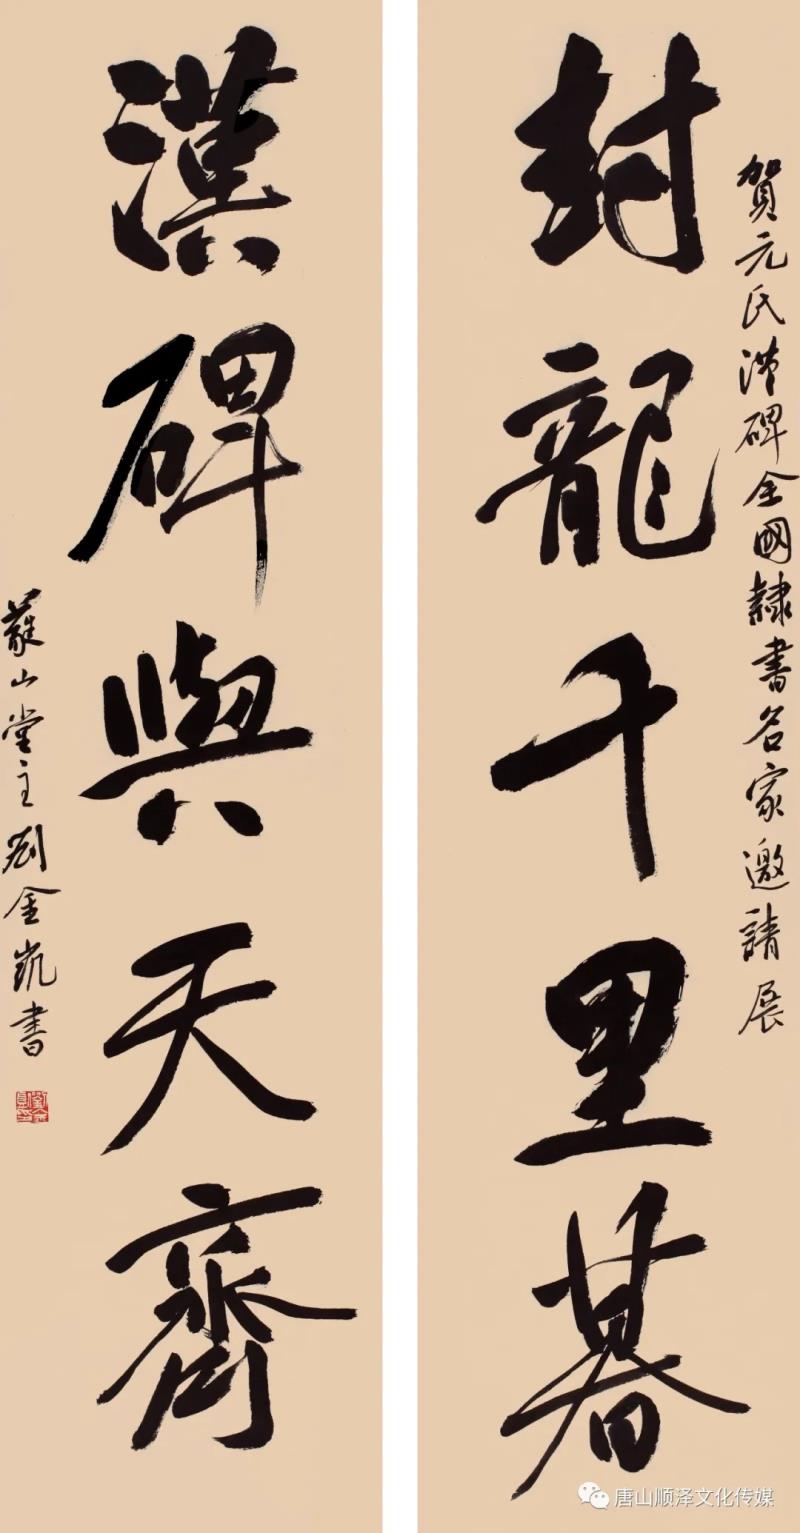 賀元氏漢碑全國隸書名家邀請展
封龍千里暮
漢碑與天齊
山堂主劉金凱書
唐山顺泽文化传媒